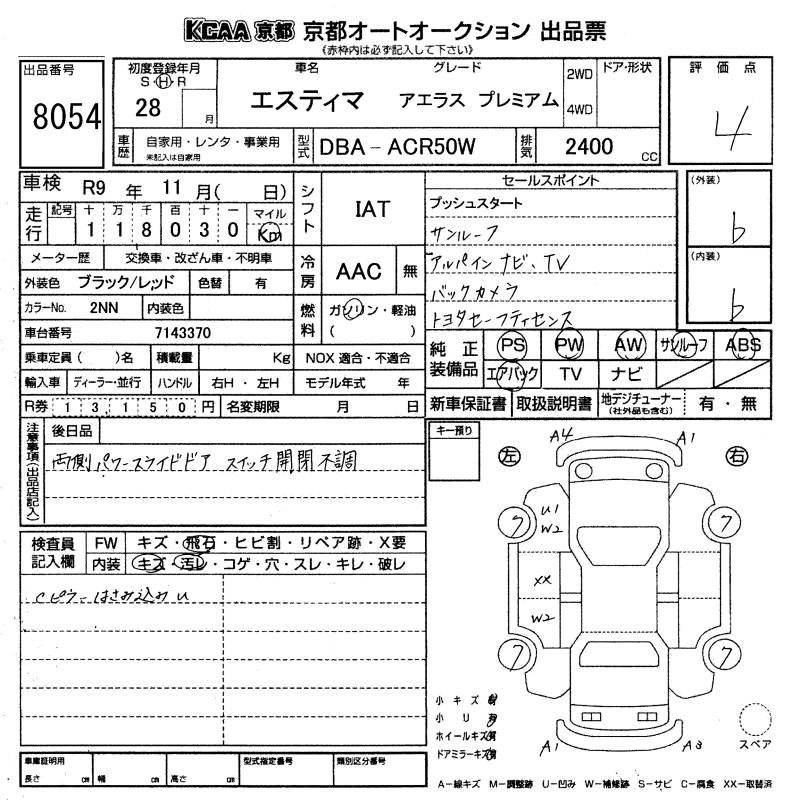 KCAA 京都 京都オートオークション 出品票
《赤枠内は必ず記入して下さい》
出品番号
8054
初度登録年月
S・H・R
28 月
車名 グレード
エスティマ アエラス プレミアム
2WD
4WD
ドア・形状
評価点
4
車歴
自家用・レンタ・事業用
未記入は自家用
型式 DBA-ACR50W
排気 2400 CC
車検 R9 年 11 月( 日)
走行
記号 十 万 千 百 十 一 マイル
1 1 8 0 3 0 Km
メーター歴 交換車・改ざん車・不明車
外装色 ブラック/レッド 色替 有
カラーNo. 2NN 内装色
車台番号 7143370
乗車定員( )名 積載量 Kg
輸入車 ディーラー・並行 ハンドル 右H・左H
R券 13,150円 名変期限 月 日
シフト IAT
冷房 AAC 無
燃料 ガソリン・軽油
( )
NOX 適合・不適合
モデル年式 年
セールスポイント
プッシュスタート
サンルーフ
アルパイン ナビ、TV
バックカメラ
トヨタセーフティセンス
(外装)
b
(内装)
b
純正装備品
PS PW AW サンルーフ ABS
エアバック TV ナビ
新車保証書 取扱説明書 地デジチューナー
(社外品も含む)
有・無
注意事項(出品店記入)
後日品
両側パワースライドドア スイッチ開閉不調
検査員記入欄
FW キズ・飛石・ヒビ割・リペア跡・X要
内装 キズ・汚レ・コゲ・穴・スレ・キレ・破レ
Cピラーはさみ込みU
キー預り
左
右
A4
A1
U1
W2
7
7
XX
W2
7
7
A1
A3
小キズ有
小U有
ホイールキズ有
ドアミラーキズ有
スペア
A-線キズ M-調整跡 U-凹み W-補修跡 S-サビ C-腐食 XX-取替済
車庫証明用
長さ cm 幅 cm 高さ cm
型式指定番号
類別区分番号